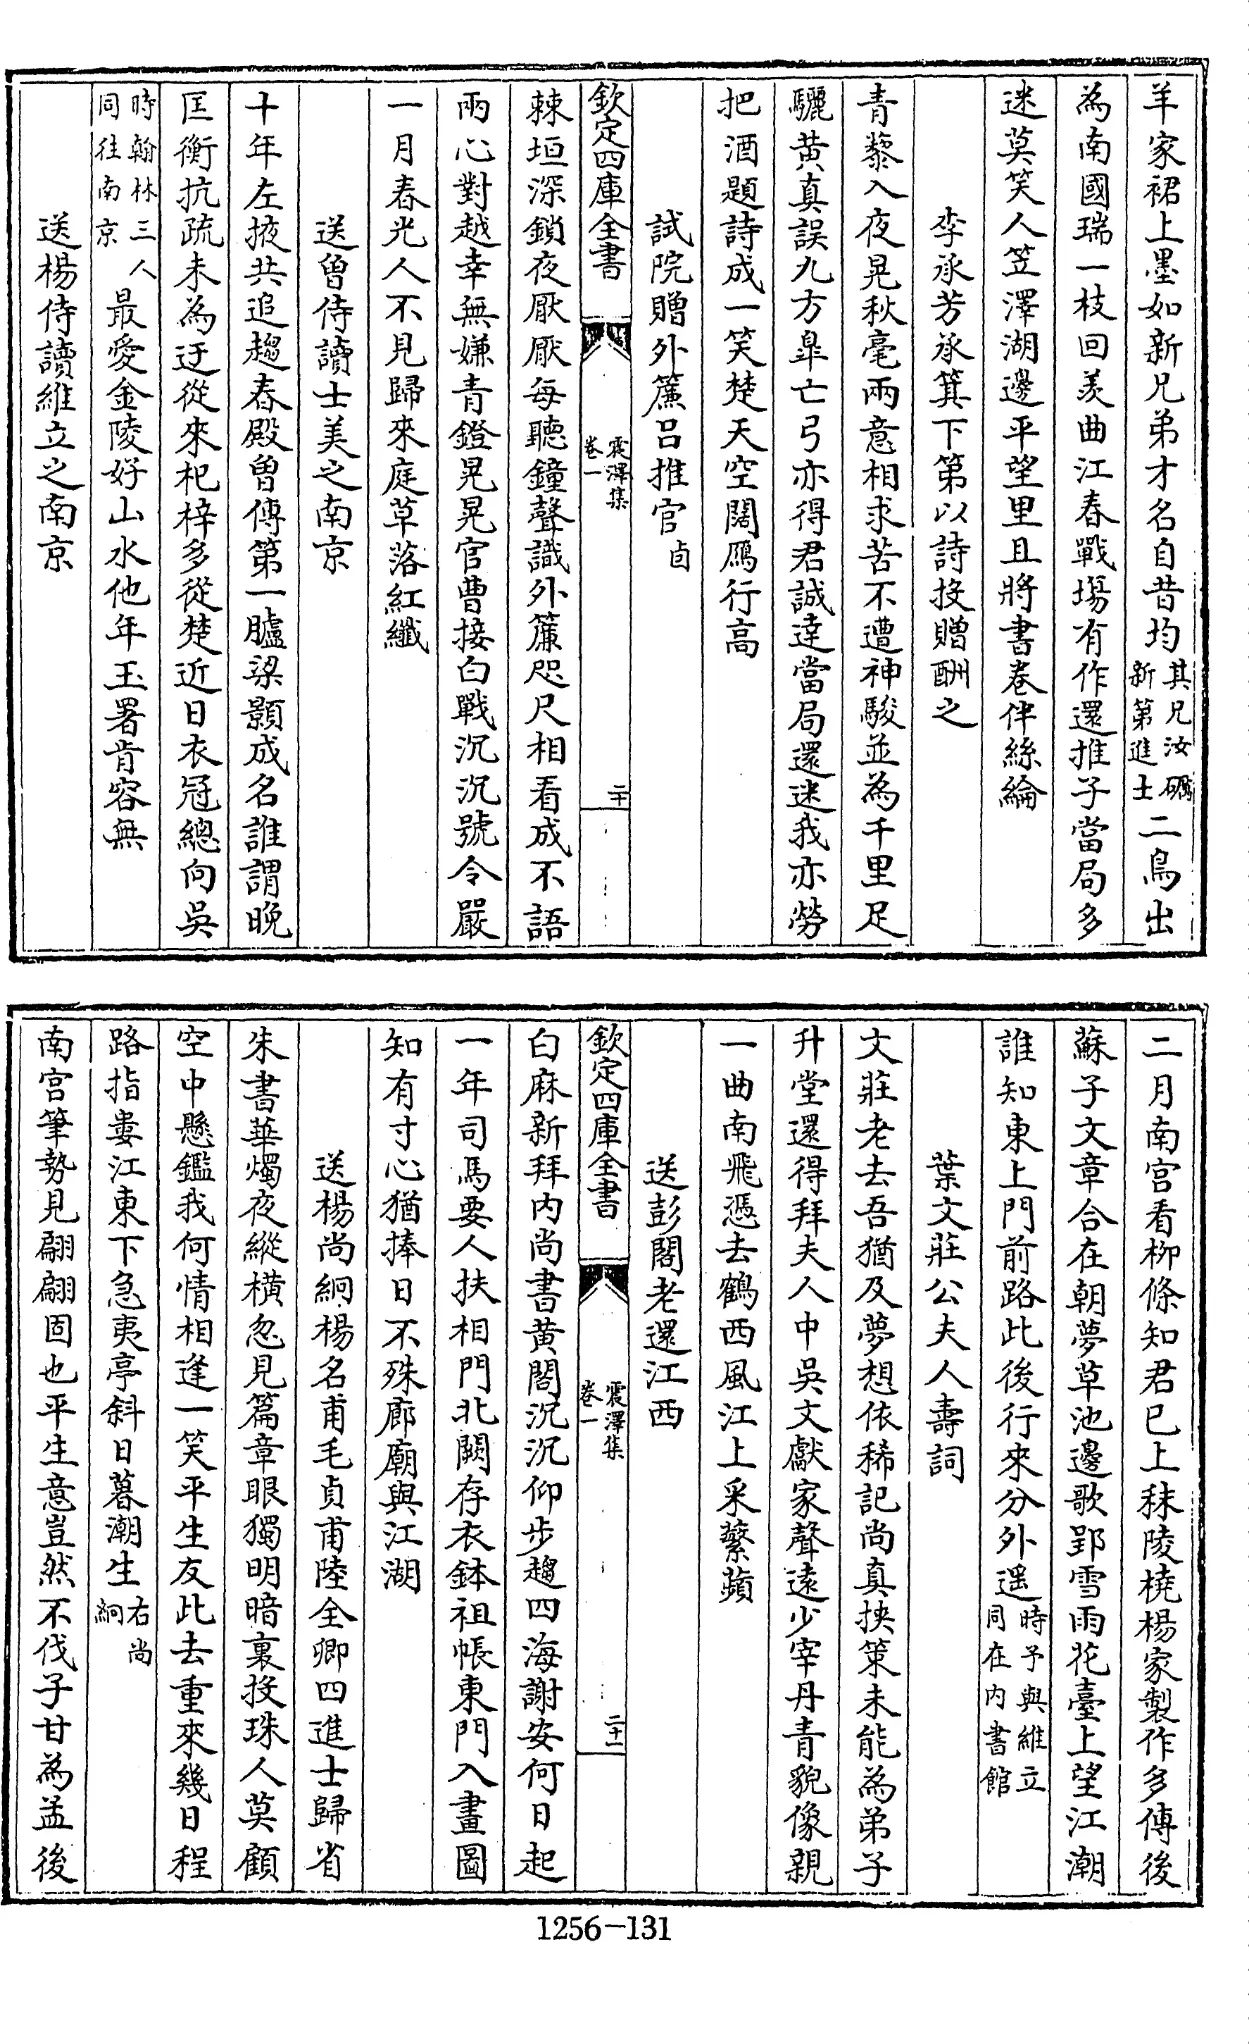 羊家裙上墨如新兄弟才名自昔均其兄汝礪新第進士二鳥出
為南國瑞一枝回羨曲江春戰場有作還推子當局多
迷莫笑人笠澤湖邊平望里且將書卷伴絲綸
李承芳承箕下第以詩投贈酬之
青藜入夜晃秋毫兩意相求苦不遭神駿並為千里足
驪黄真誤九方臯亡弓亦得君誠達當局還迷我亦勞
把酒題詩成一笑楚天空闊鴈行高
試院贈外簾呂推官貞
欽定四庫全書
震澤集
卷一
二十
棘垣深鎖夜厭厭每聽鐘聲識外簾咫尺相看成不語
兩心對越幸無嫌青鐙晃晃官曹接白戰沉沉號令嚴
一月春光人不見歸來庭草落紅纖
送曾侍讀士美之南京
十年左掖共追趨春殿曾傳第一臚梁顥成名誰謂晚
匡衡抗疏未為迂從來杞梓多從楚近日衣冠總向吳
時翰林三人同往南京最愛金陵好山水他年玉署肯容無
送楊侍讀維立之南京
二月南宫看柳條知君已上秣陵橈楊家製作多傳後
蘇子文章合在朝夢草池邊歌郢雪雨花臺上望江潮
誰知東上門前路此後行來分外遥時予與維立同在内書館
葉文莊公夫人壽詞
文莊老去吾猶及夢想依稀記尚真挟策未能為弟子
升堂還得拜夫人中吳文獻家聲遠少宰丹青貌像親
一曲南飛憑去鶴西風江上采蘩蘋
送彭閣老還江西
欽定四庫全書
震澤集
卷一
二十一
白麻新拜内尚書黄閣沉沉仰步趨四海謝安何日起
一年司馬要人扶相門北闕存衣鉢祖帳東門入畫圖
知有寸心猶捧日不殊廊廟與江湖
送楊尚絅楊名甫毛貞甫陸全卿四進士歸省
朱書華燭夜縱横忽見篇章眼獨明暗裏投珠人莫顧
空中懸鑑我何情相逢一笑平生友此去重來幾日程
路指婁江東下急夷亭斜日暮潮生右尚絅
南宫筆勢見翩翩固也平生意豈然不伐子甘為孟後
1256-131